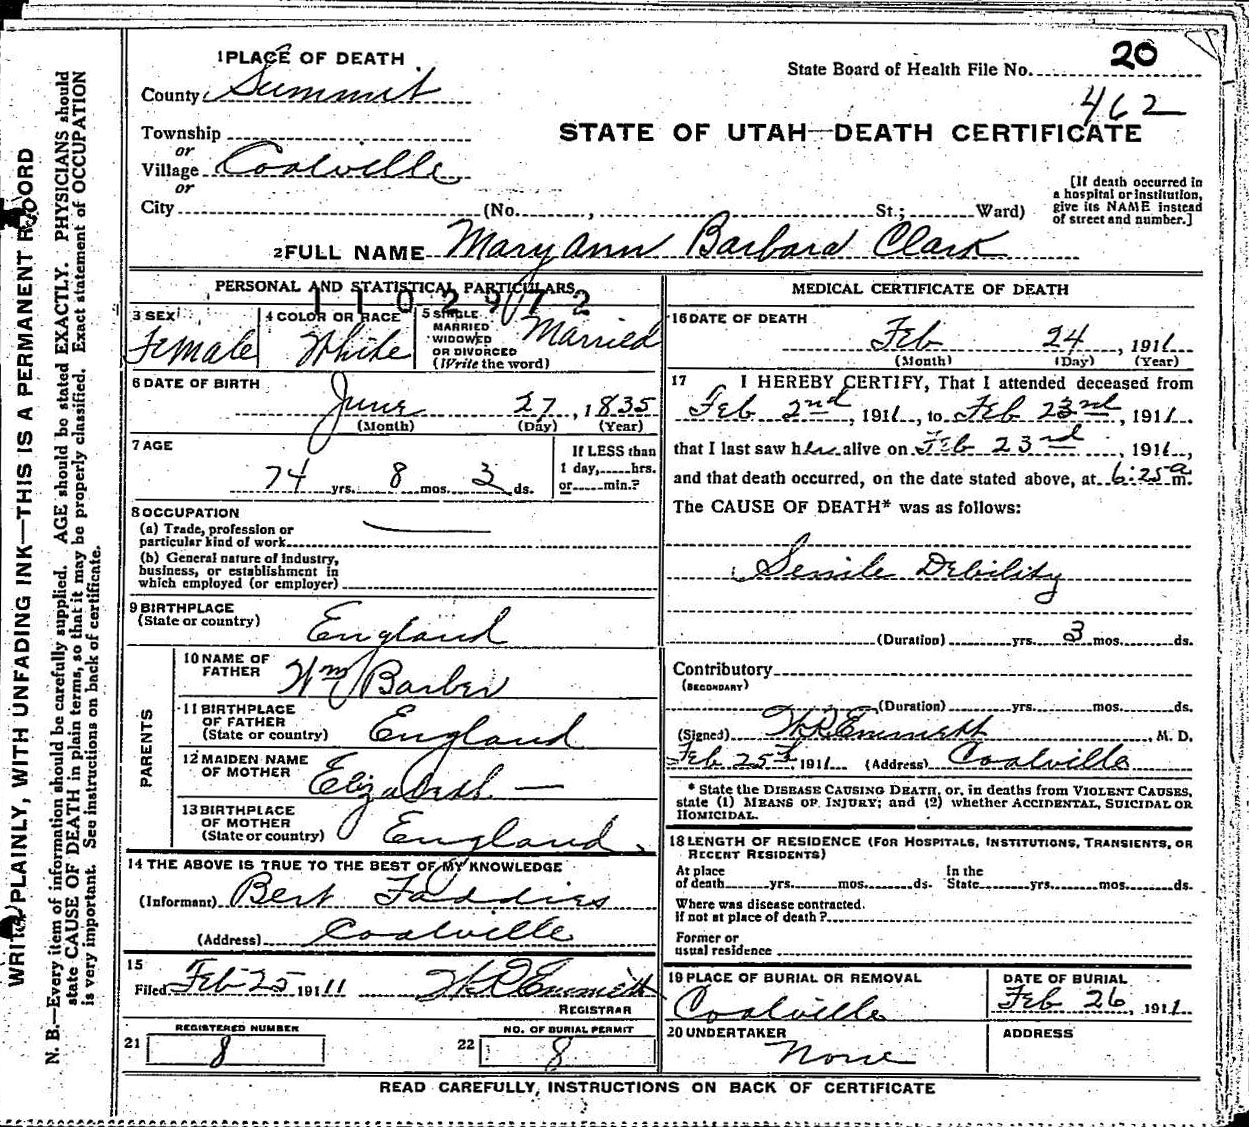 20
1 PLACE OF DEATH
State Board of Health File No.
County Summit
462
STATE OF UTAH—DEATH CERTIFICATE
Township
or
Village Coalville
or
City (No. , St.; Ward)
[If death occurred in
a hospital or institution,
give its NAME instead
of street and number.]
2 FULL NAME Mary ann Barbara Clark
PERSONAL AND STATISTICAL PARTICULARS
1102972
3 SEX Female
4 COLOR OR RACE White
5 SINGLE
MARRIED
WIDOWED
OR DIVORCED
(Write the word) Married
6 DATE OF BIRTH
June 27, 1835
(Month) (Day) (Year)
7 AGE
74 yrs. 8 mos. 3 ds.
If LESS than
1 day, hrs.
or min.?
8 OCCUPATION
(a) Trade, profession or
particular kind of work
(b) General nature of industry,
business, or establishment in
which employed (or employer)
9 BIRTHPLACE
(State or country) England
PARENTS
10 NAME OF
FATHER Wm Barber
11 BIRTHPLACE
OF FATHER
(State or country) England
12 MAIDEN NAME
OF MOTHER Elizabeth —
13 BIRTHPLACE
OF MOTHER
(State or country) England
14 THE ABOVE IS TRUE TO THE BEST OF MY KNOWLEDGE
(Informant) Bert Faddies
(Address) Coalville
15
Filed Feb 25 191 11 W D Emmett
REGISTRAR
REGISTERED NUMBER
21 8
NO. OF BURIAL PERMIT
22 8
MEDICAL CERTIFICATE OF DEATH
16 DATE OF DEATH
Feb 24, 1911
(Month) (Day) (Year)
17 I HEREBY CERTIFY, That I attended deceased from
Feb 2nd, 1911, to Feb 23rd, 1911.
that I last saw her alive on Feb 23rd, 1911,
and that death occurred, on the date stated above, at 6:25 a m.
The CAUSE OF DEATH* was as follows:
Senile Debility
(Duration) yrs. 3 mos. ds.
Contributory
(SECONDARY)
(Duration) yrs. mos. ds.
(Signed) W D Emmett, M. D.
Feb 25th, 1911 (Address) Coalville
* State the DISEASE CAUSING DEATH, or, in deaths from VIOLENT CAUSES,
state (1) MEANS OF INJURY; and (2) whether ACCIDENTAL, SUICIDAL OR
HOMICIDAL.
18 LENGTH OF RESIDENCE (FOR HOSPITALS, INSTITUTIONS, TRANSIENTS, OR
RECENT RESIDENTS)
At place
of death yrs. mos. ds.
In the
State yrs. mos. ds.
Where was disease contracted.
If not at place of death?
Former or
usual residence
19 PLACE OF BURIAL OR REMOVAL
Coalville
DATE OF BURIAL
Feb 26, 1911
20 UNDERTAKER
None
ADDRESS
READ CAREFULLY, INSTRUCTIONS ON BACK OF CERTIFICATE
WRITE PLAINLY, WITH UNFADING INK—THIS IS A PERMANENT RECORD
N. B.—Every item of information should be carefully supplied. AGE should be stated EXACTLY. PHYSICIANS should
state CAUSE OF DEATH in plain terms, so that it may be properly classified. Exact statement of OCCUPATION
is very important. See instructions on back of certificate.